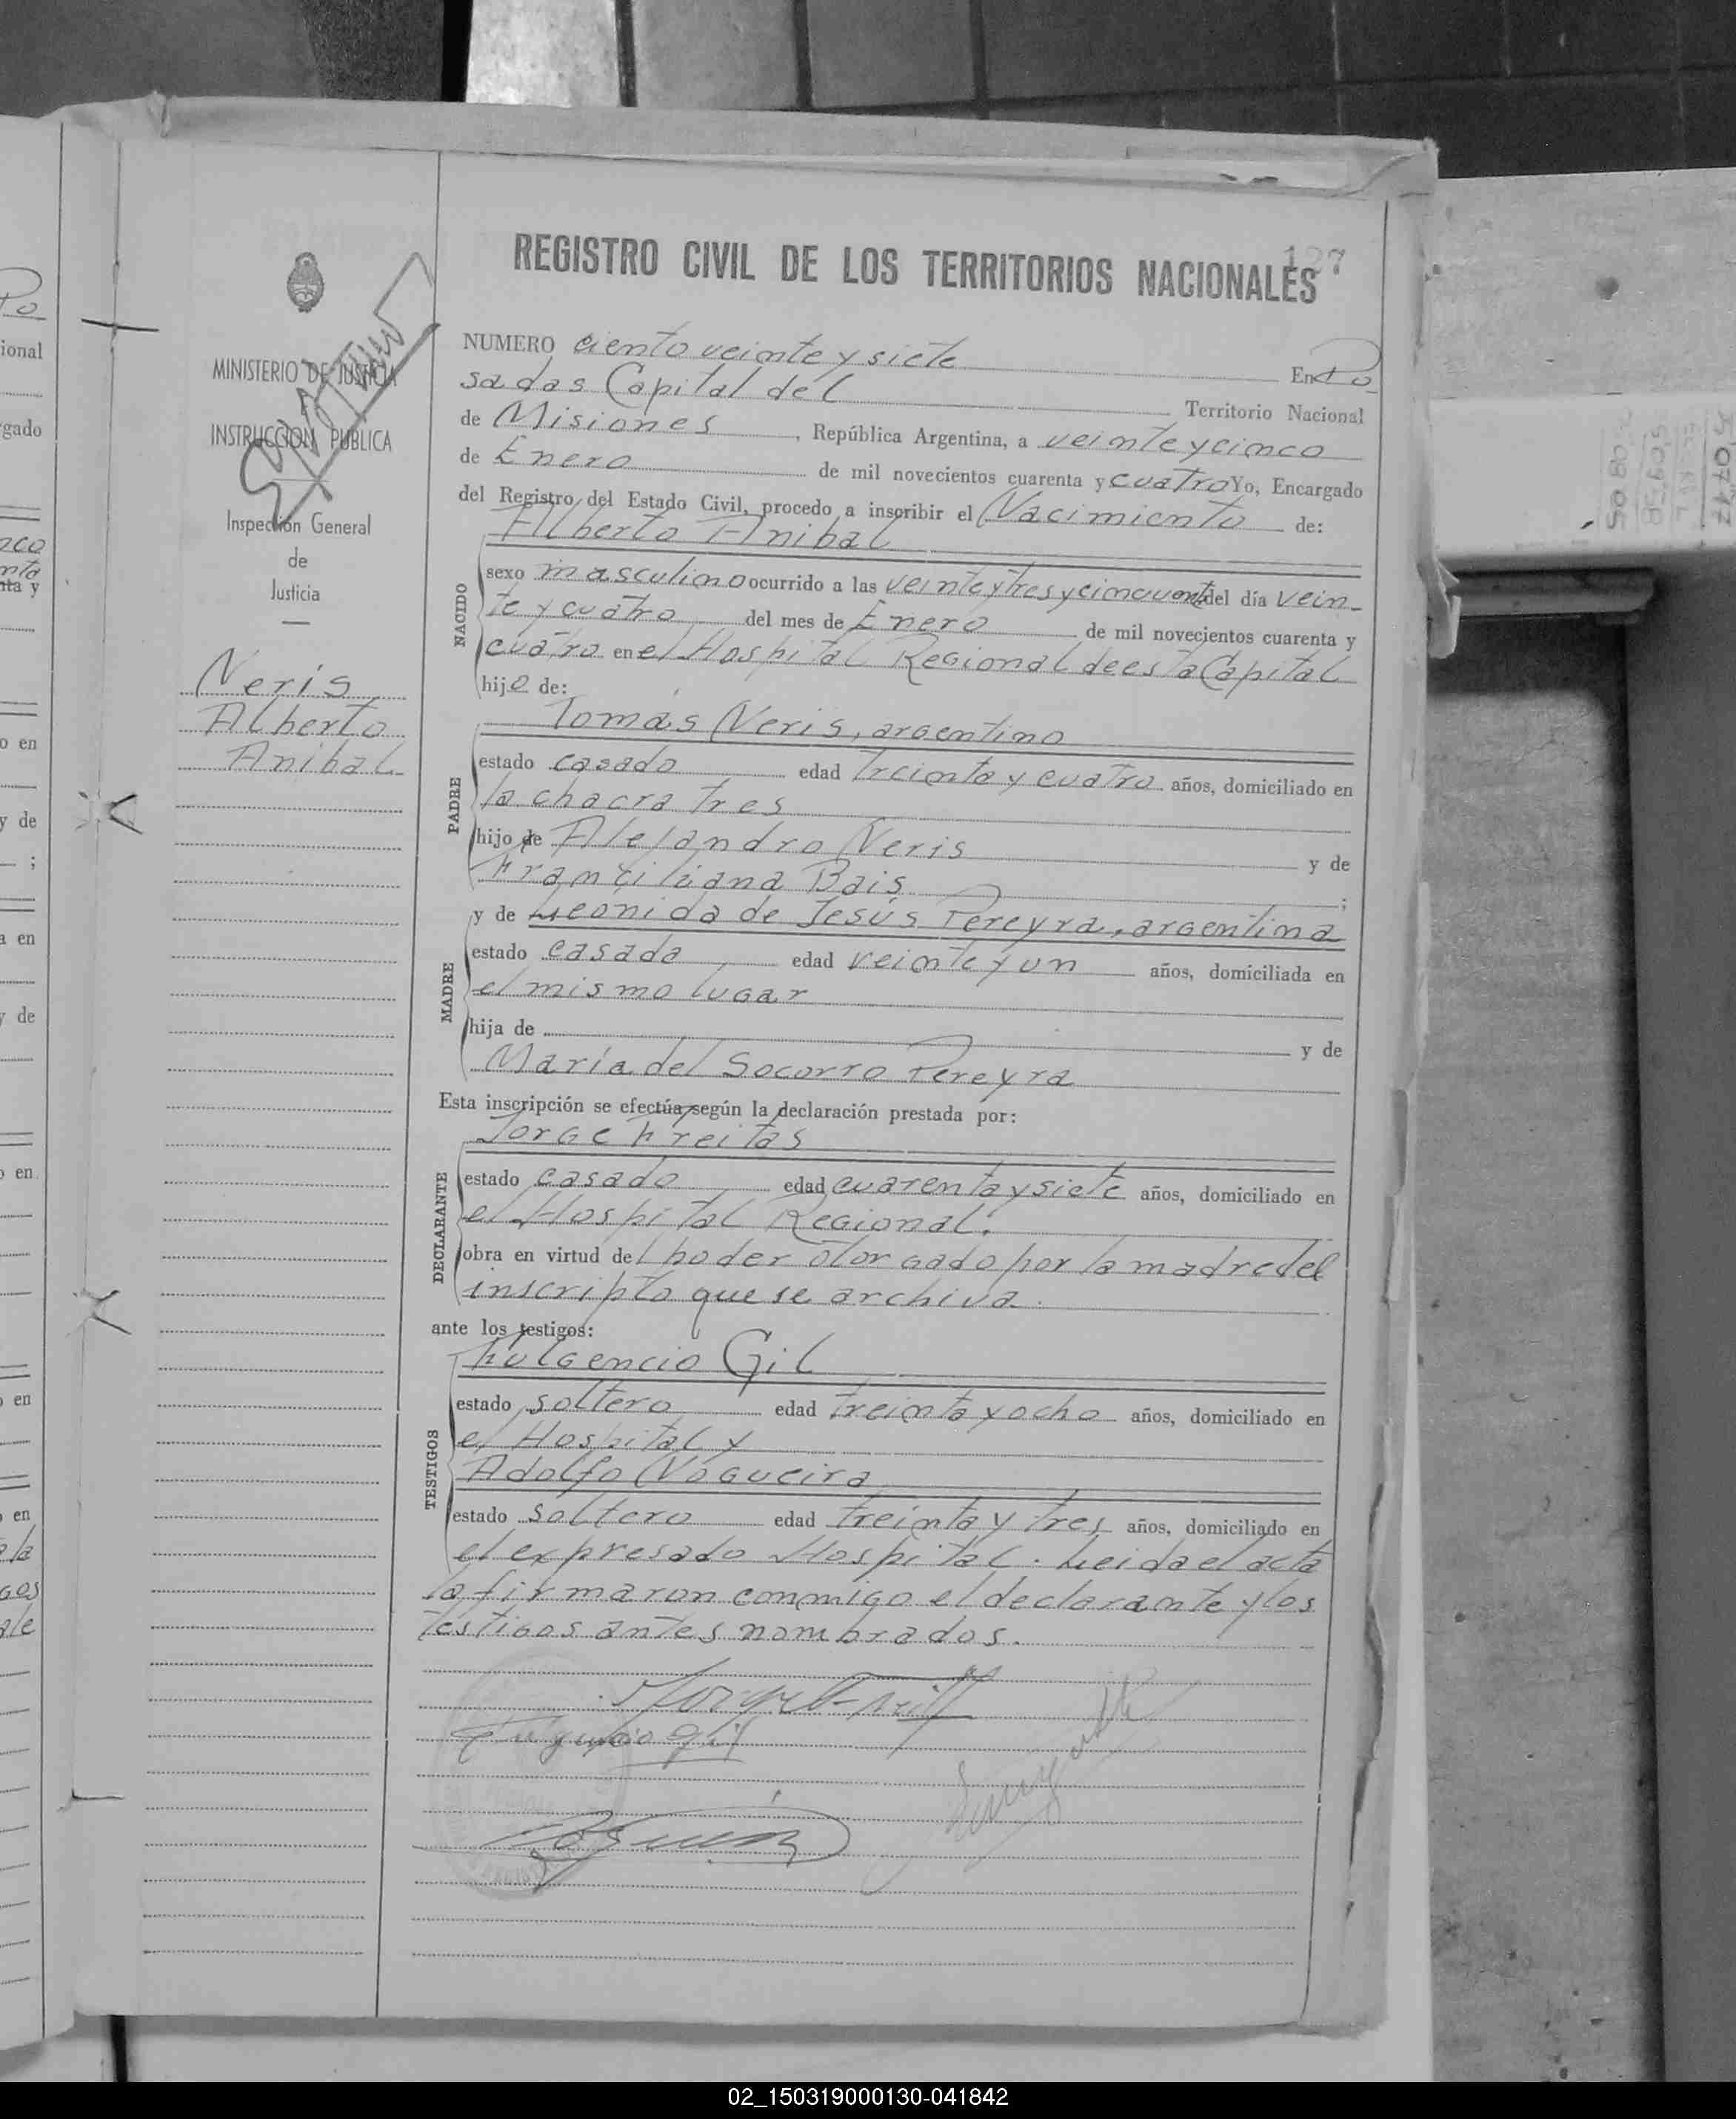 REGISTRO CIVIL DE LOS TERRITORIOS NACIONALES
127
MINISTERIO DE JUSTICIA
INSTRUCCION PUBLICA
Inspección General
de
Justicia
Neris
Alberto
Anibal
NUMERO ciento veinte y siete En Po
sadas Capital del Territorio Nacional
de Misiones, República Argentina, a veinte y cinco
de Enero de mil novecientos cuarenta y cuatro Yo, Encargado
del Registro del Estado Civil, procedo a inscribir el Nacimiento de:
NACIDO
Alberto Anibal
sexo masculino ocurrido a las veinte y tres y cincuenta del día vein-
te y cuatro del mes de Enero de mil novecientos cuarenta y
cuatro en el Hospital Regional de esta Capital
hijo de:
PADRE
Tomás Neris, argentino
estado casado edad treinta y cuatro años, domiciliado en
la chacra tres
hijo de Alejandro Neris y de
Bais;
MADRE
y de Leonida de Jesús Pereyra, argentina
estado casada edad veinte y un años, domiciliada en
el mismo lugar
hija de y de
María del Socorro Pereyra
Esta inscripción se efectúa según la declaración prestada por:
DECLARANTE
Jorge Freitas
estado casado edad cuarenta y siete años, domiciliado en
el Hospital Regional.
obra en virtud del poder otorgado por la madre del
inscripto que se archiva.
ante los testigos:
TESTIGOS
Fulgencio Gil
estado soltero edad treinta y ocho años, domiciliado en
el Hospital y
Adolfo Nogueira
estado soltero edad treinta y tres años, domiciliado en
el expresado Hospital. Leida el acta
la firmaron conmigo el declarante y los
testigos antes nombrados.
Fulgencio Gil
02_150319000130-041842